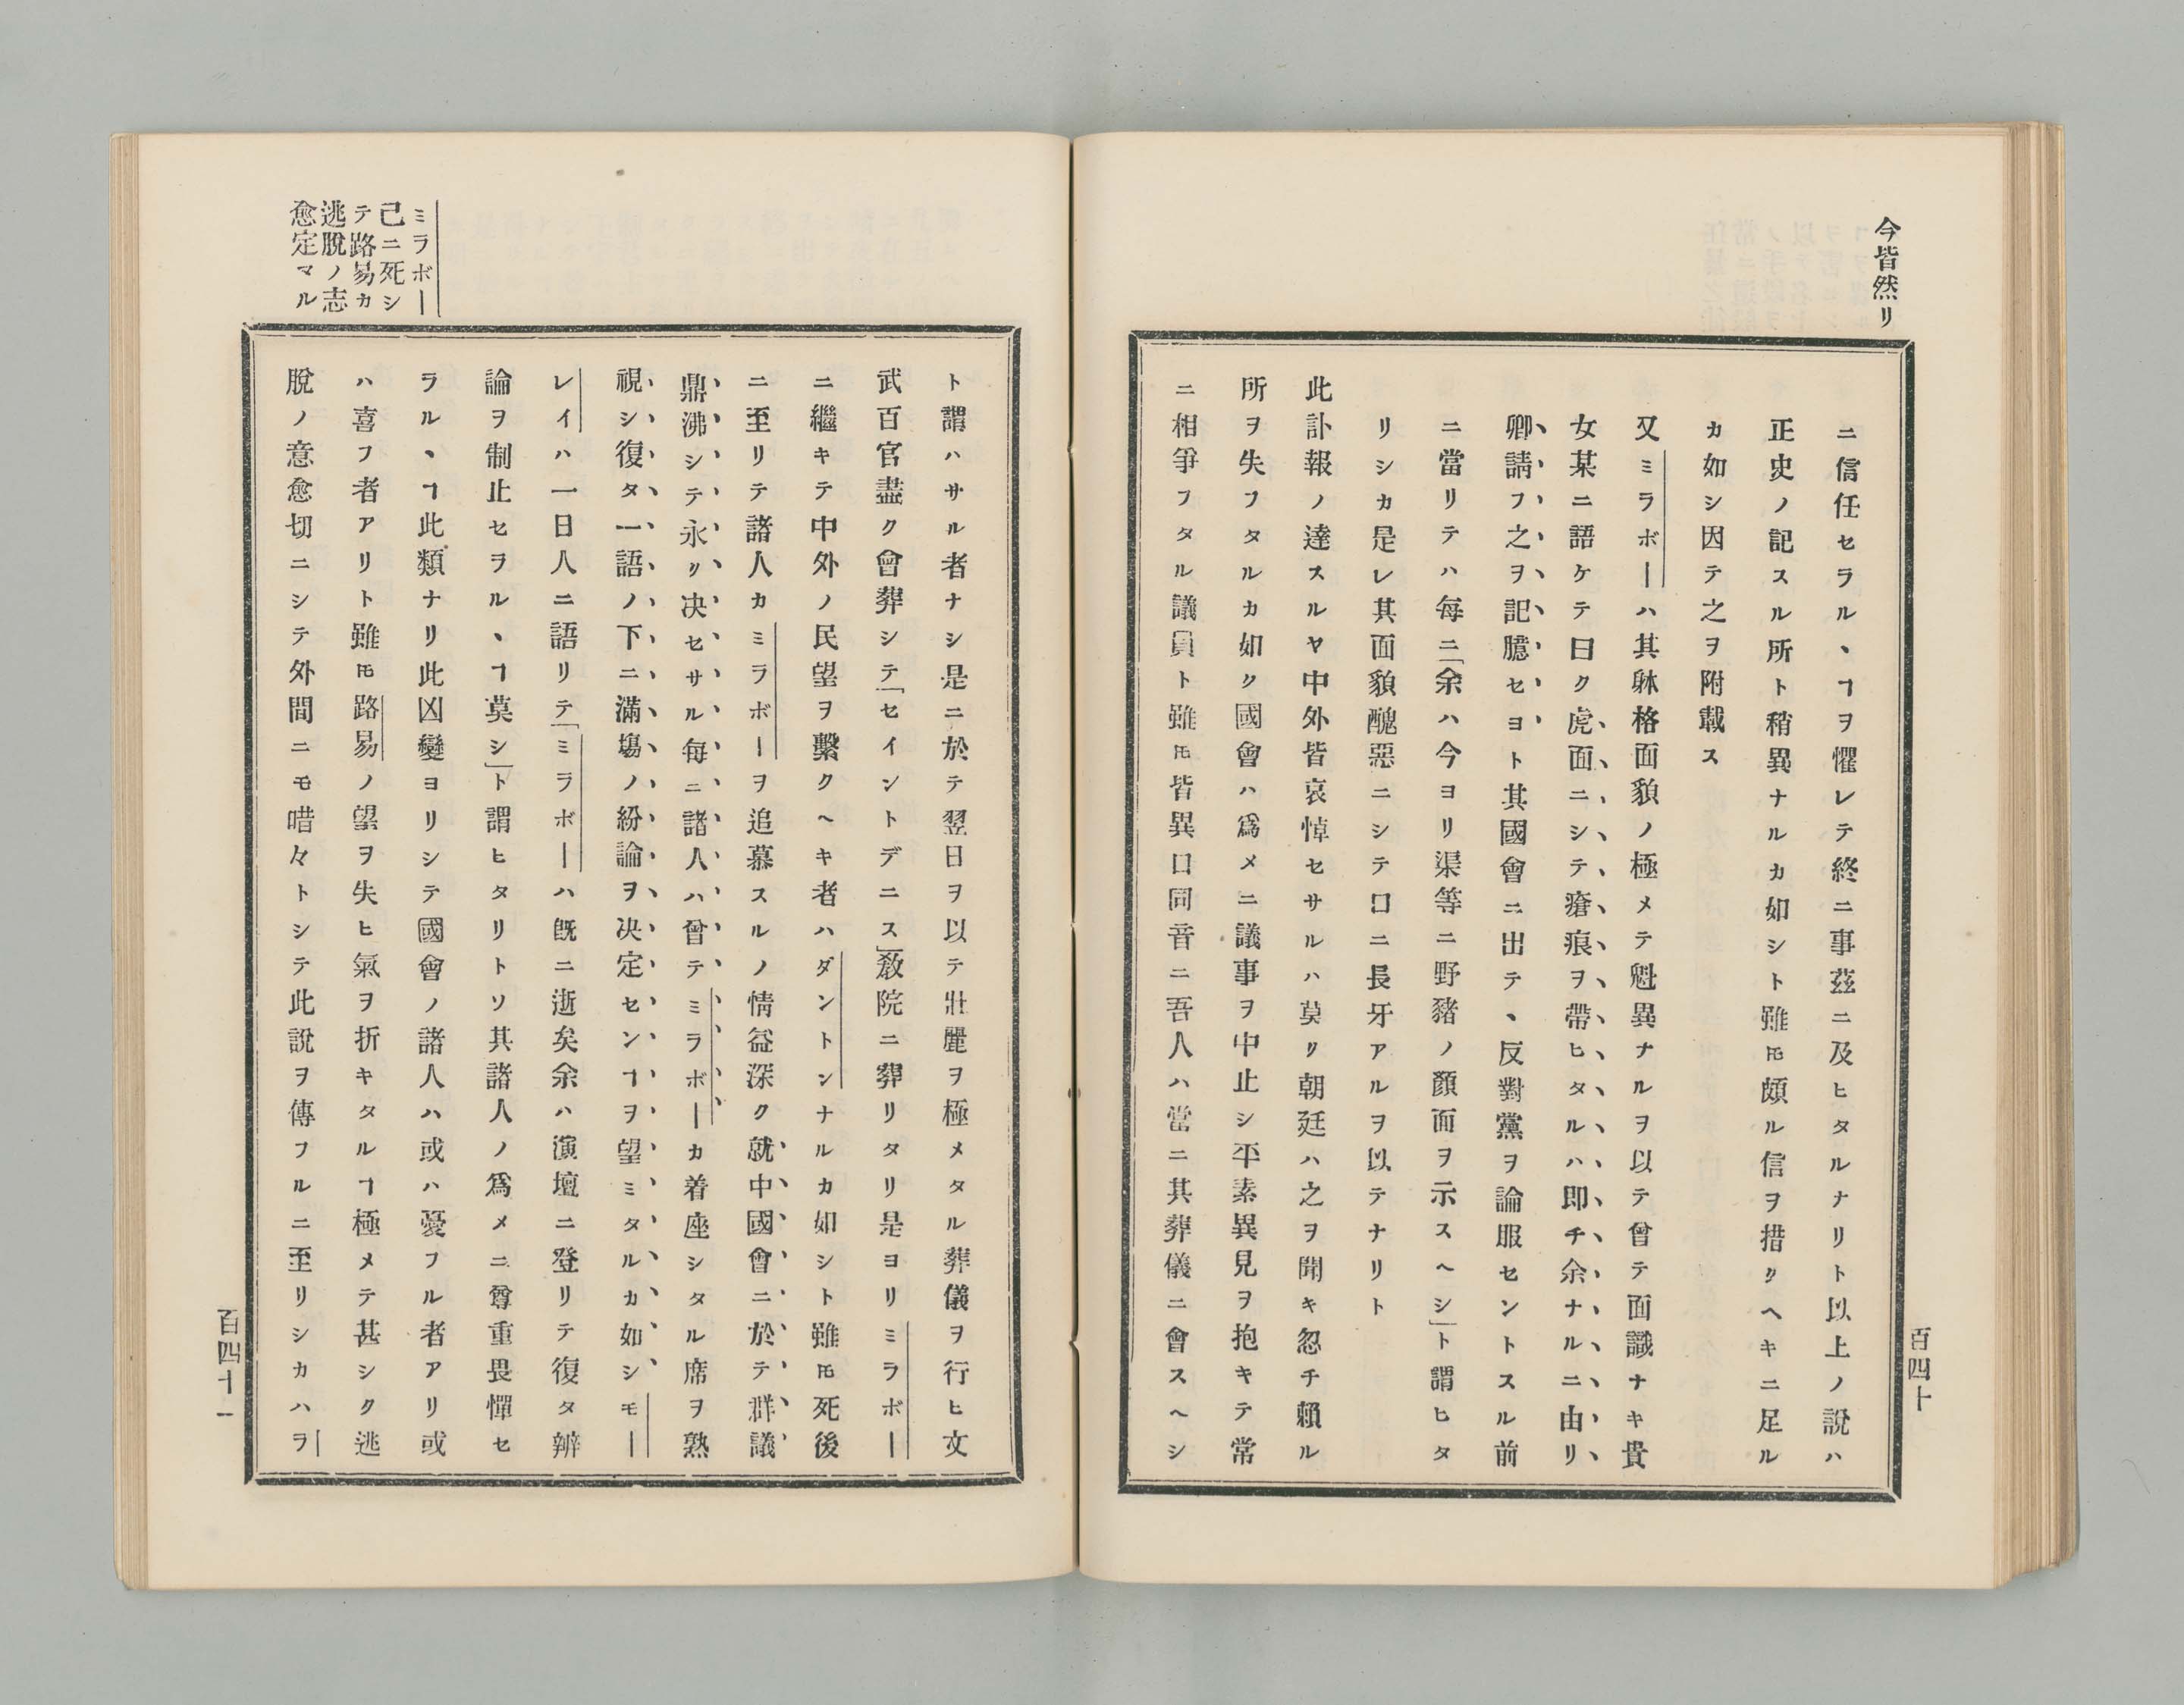 今皆然リ
ニ信任セラルヽヿヲ懼レテ終ニ事茲ニ及ヒタルナリト以上ノ說ハ
正史ノ記スル所ト稍異ナルカ如シト雖𪜈頗ル信ヲ措クヘキニ足ル
カ如シ因テ之ヲ附載ス
又ミラボーハ其躰格面貌ノ極メテ魁異ナルヲ以テ曾テ面識ナキ貴
女某ニ語ケテ曰ク虎面ニシテ瘡痕ヲ帶ヒタルハ卽チ余ナルニ由リ
卿請フ之ヲ記臆セヨト其國會ニ出テヽ反對黨ヲ論服セントスル前
ニ當リテハ每ニ「余ハ今ヨリ渠等ニ野豬ノ顏面ヲ示スヘシ」ト謂ヒタ
リシカ是レ其面貌醜惡ニシテ口ニ長牙アルヲ以テナリト
此訃報ノ達スルヤ中外皆哀悼セサルハ莫ク朝廷ハ之ヲ聞キ忽チ賴ル
所ヲ失フタルカ如ク國會ハ爲メニ議事ヲ中止シ平素異見ヲ抱キテ常
ニ相爭フタル議員ト雖𪜈皆異口同音ニ吾人ハ當ニ其葬儀ニ會スヘシ
百四十
ミラボー
己ニ死シ
テ路易カ
逃脫ノ志
愈定マル
ト謂ハサル者ナシ是ニ於テ翌日ヲ以テ壯麗ヲ極メタル葬儀ヲ行ヒ文
武百官盡ク會葬シテ「セイントデニス」敎院ニ葬リタリ是ヨリミラボー
ニ繼キテ中外ノ民望ヲ繫クヘキ者ハダントンナルカ如シト雖𪜈死後
ニ至リテ諸人カミラボーヲ追慕スルノ情益深ク就中國會ニ於テ群議
鼎沸シテ永ク决セサル每ニ諸人ハ曾テミラボーカ着座シタル席ヲ熟
視シ復タ一語ノ下ニ滿塲ノ紛論ヲ决定センヿヲ望ミタルカ如シモー
レイハ一日人ニ語リテ「ミラボーハ旣ニ逝矣余ハ演壇ニ登リテ復タ辨
論ヲ制止セヲルヽヿ莫シ」ト謂ヒタリトソ其諸人ノ爲メニ尊重畏憚セ
ラルヽヿ此類ナリ此凶變ヨリシテ國會ノ諸人ハ或ハ憂フル者アリ或
ハ喜フ者アリト雖𪜈路易ノ望ヲ失ヒ氣ヲ折キタルヿ極メテ甚シク逃
脫ノ意愈切ニシテ外間ニモ喈々トシテ此說ヲ傳フルニ至リシカハラ
百四十一